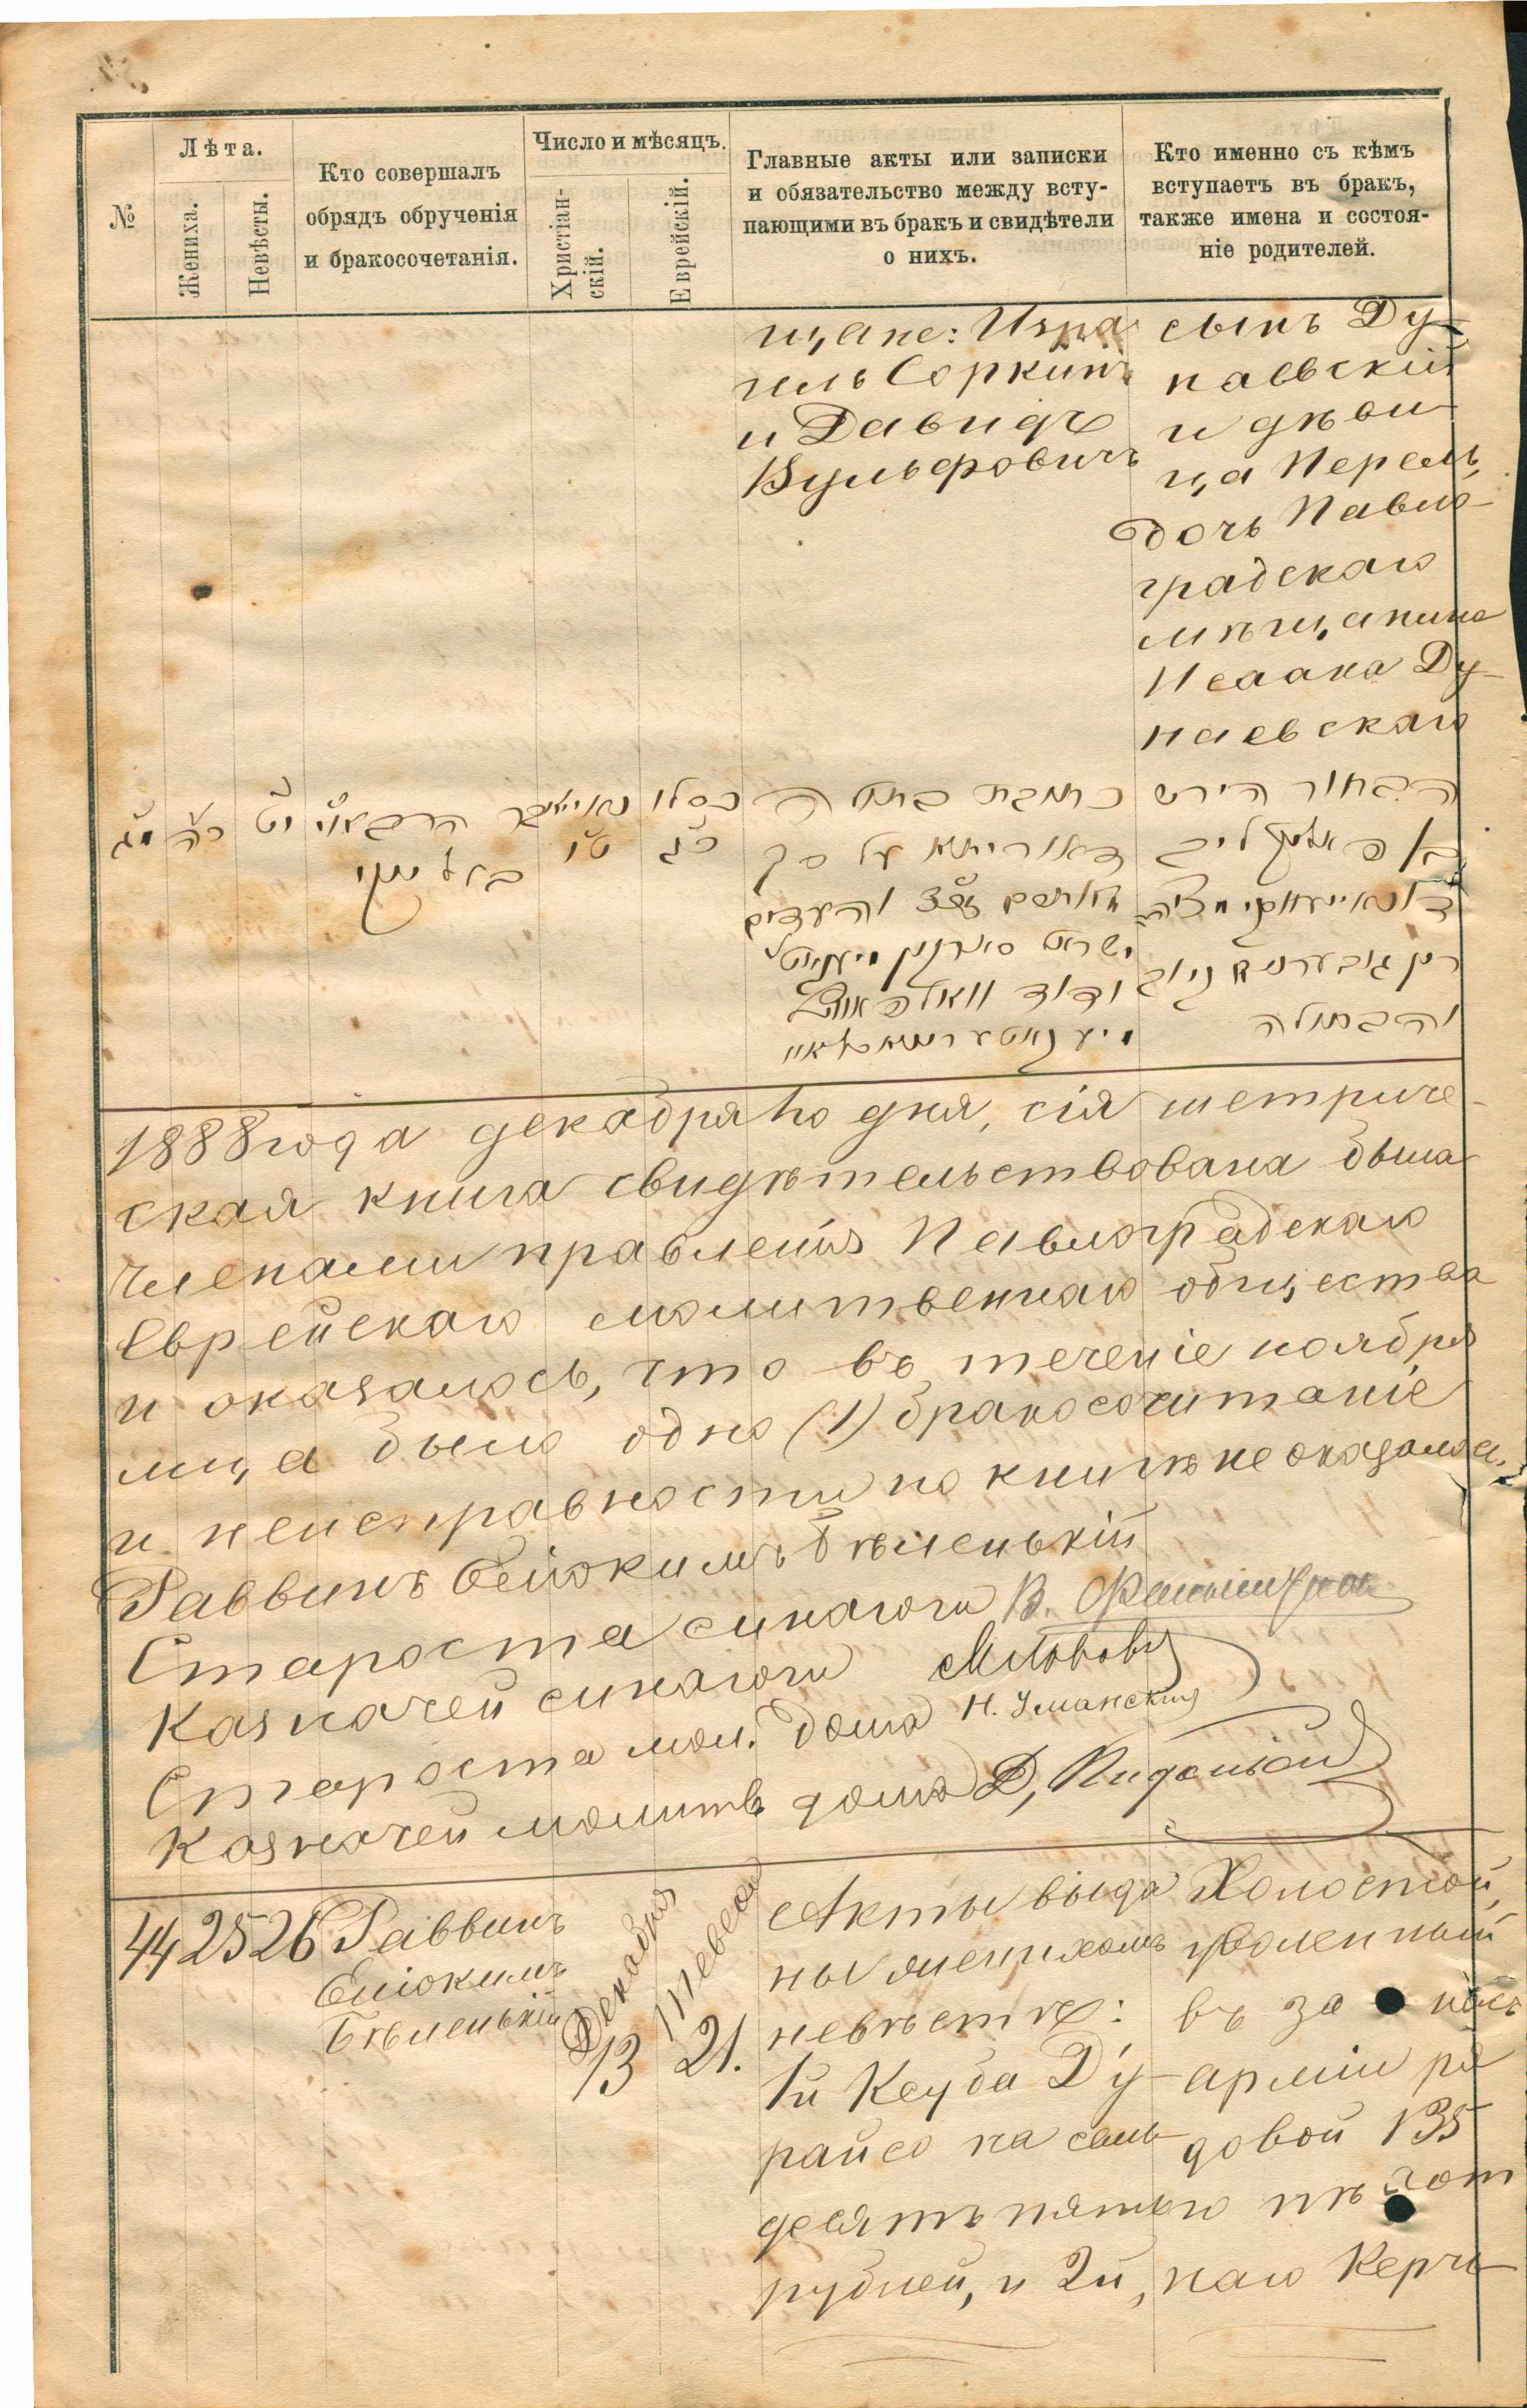 №
Лѣта.
Жениха.
Невѣсты.
Кто совершалъ
обрядъ обрученія
и бракосочетанія.
Число и мѣсяцъ.
Христіан-
скій.
Еврейскій.
Главные акты или записки
и обязательство между всту-
пающими въ бракъ и свидѣтели
о нихъ.
Кто именно съ кѣмъ
вступаетъ въ бракъ,
также имена и состоя-
ніе родителей.
щане: Изра
иль Соркинъ
и Давидъ
Вульфовичъ
сынъ Ду-
наевскій
и дѣви-
ца Перель,
дочь Павло-
градскаго
мѣщанина
Исаака Ду-
наевскаго
הבחור הירש
כתובת בתולה
כסלו
כ״ג
ט״ו
דאורייתא על סך
והעדים
ישראל סארקין
ודוד וואלפאוויץ
והבתולה
1888 года декабря 1го дня, сія метриче-
ская книга свидѣтельствована была
членами правленія Павлоградскаго
Еврейскаго молитвеннаго общества
и оказалось, что въ теченіе ноября
мца было одно (1) бракосочитаніе
и неисправности по книгѣ не оказалось.
Раввинъ Еліокимъ Бѣленькій
Староста синагоги В.
Казначей синагоги
Староста мол. дома Н. Уманскій
Казначей молитв дома Д,
44 25 26 Раввинъ
Еліокимъ
Бѣленькій
Декабря
13
Тевеса
21.
Акты выда
ны женихомъ
невѣстѣ:
1й Ксуба Дʼу-
райсо на семь
десятъ пятью
рублей, и 2й,
Холостой,
уволенный
въ за пасъ
арміи ря
довой 135
пѣхот
наго Керчь-